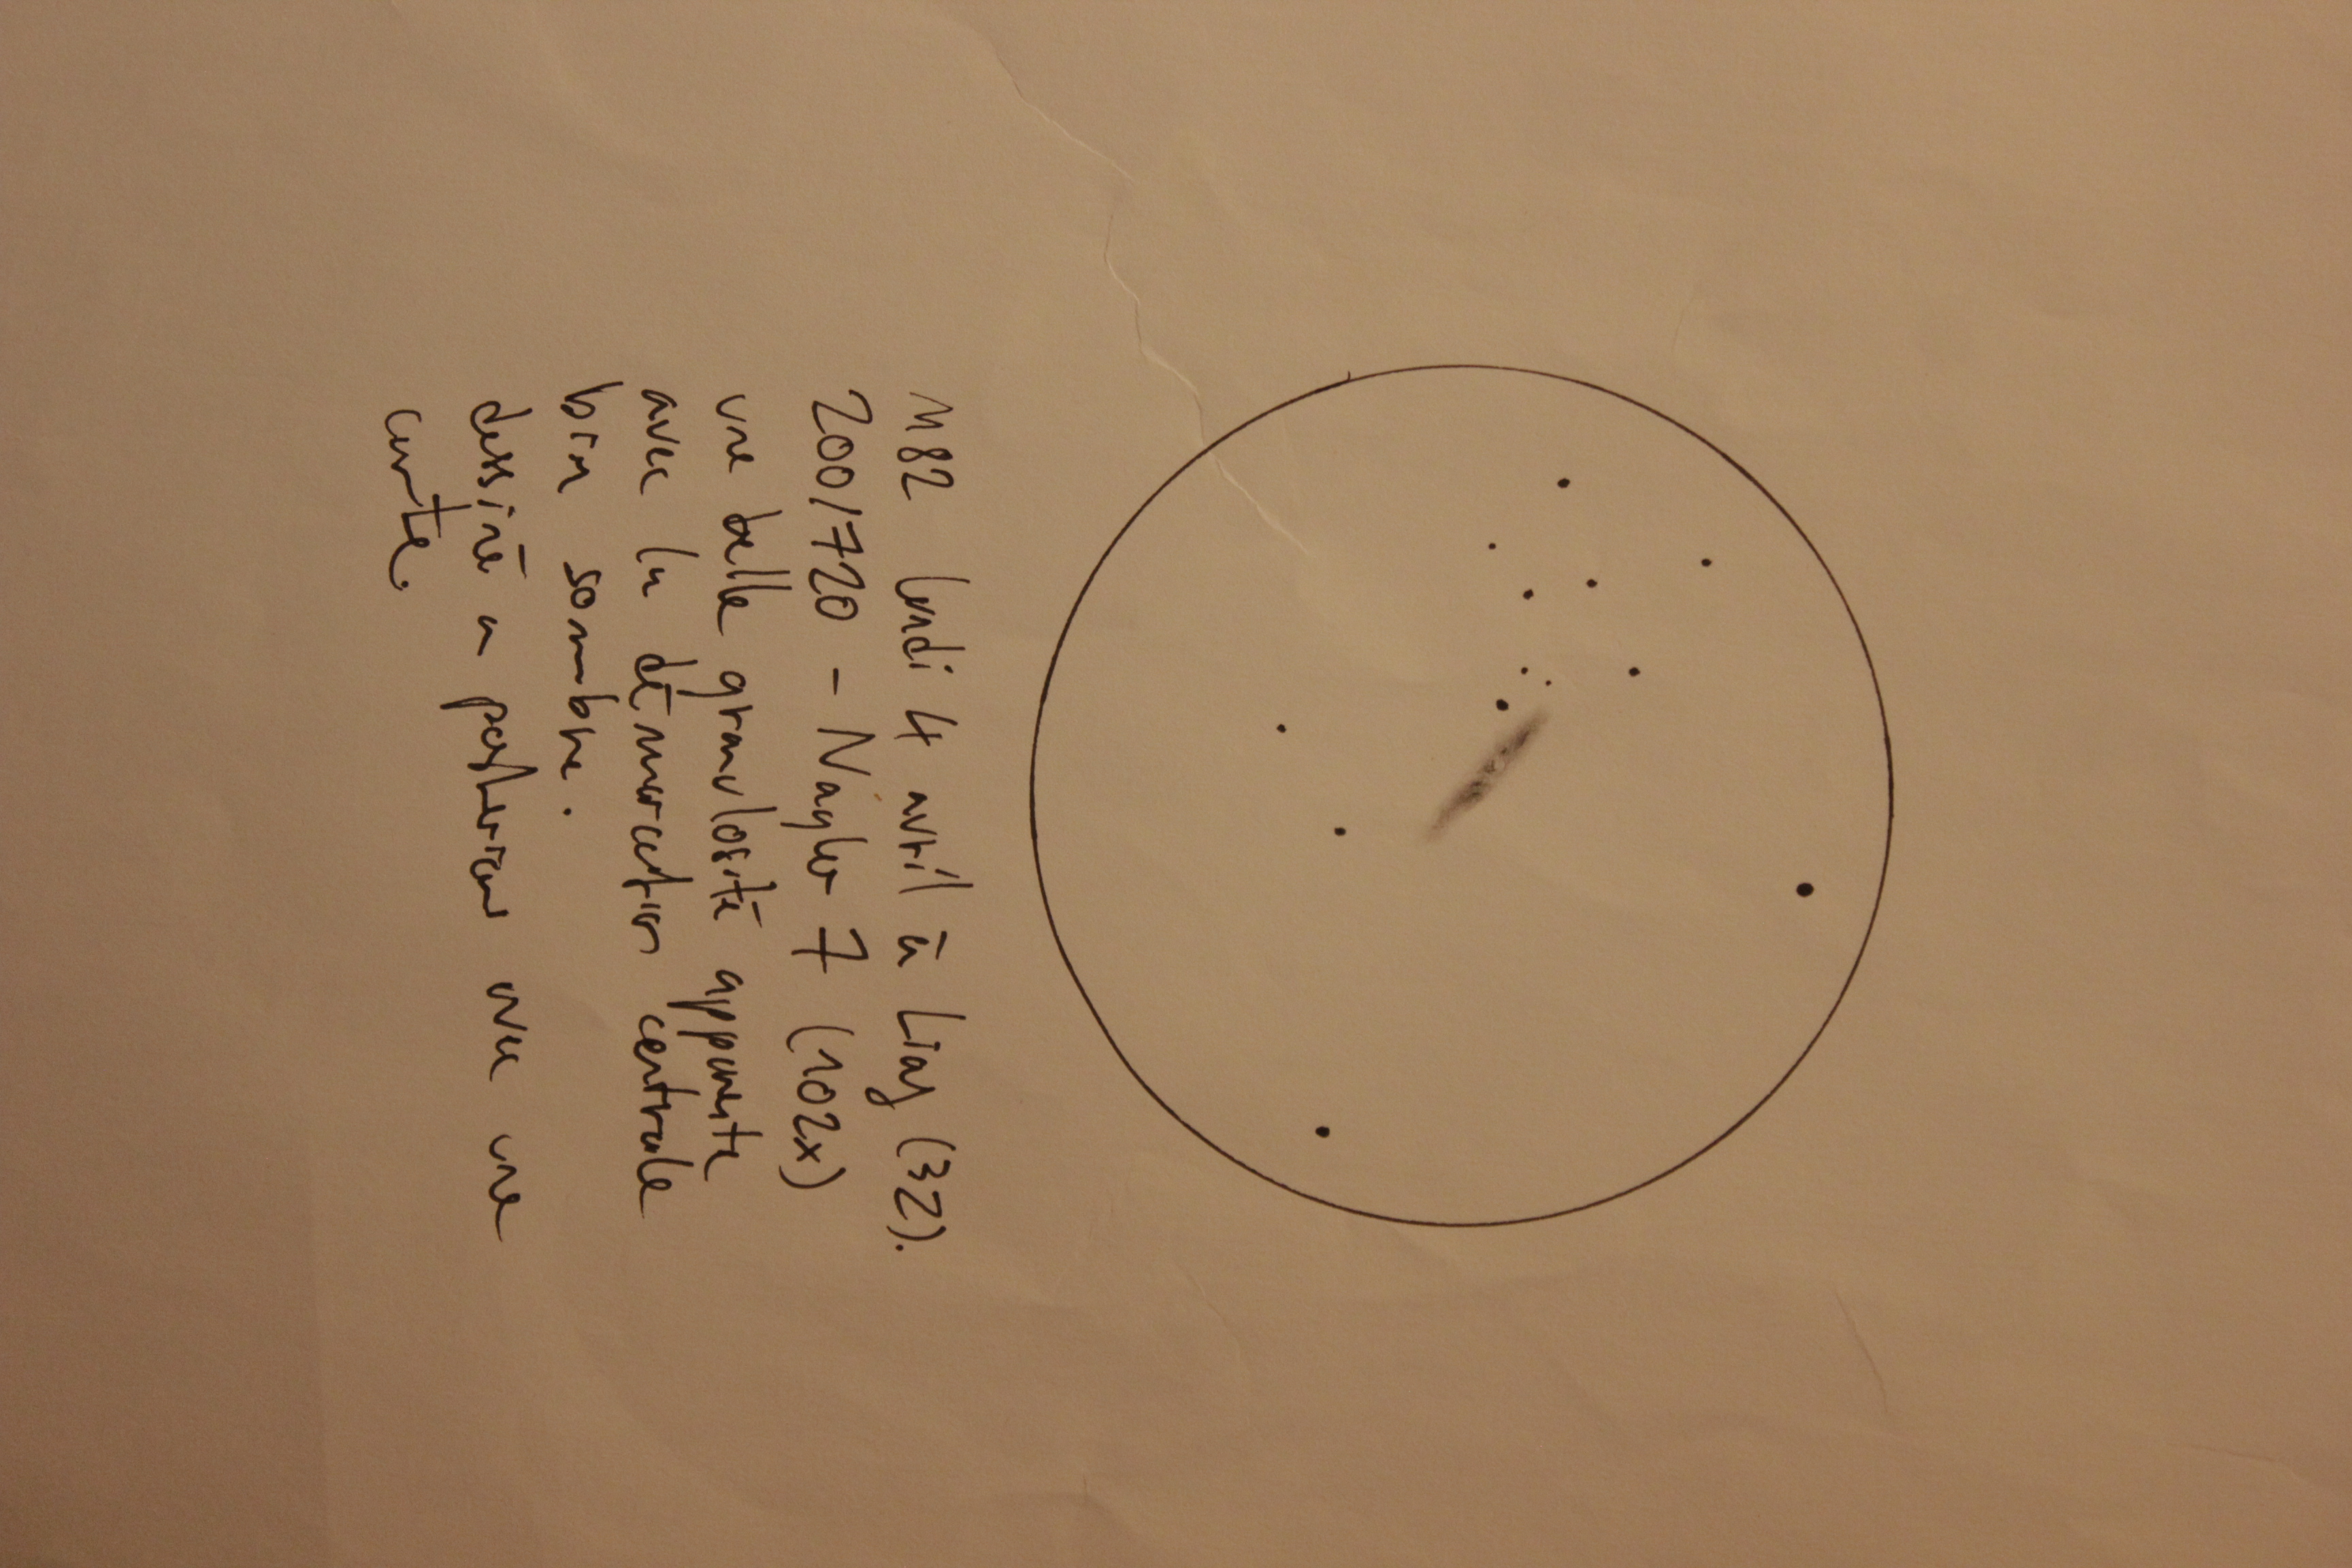 M82 lundi 4 avril à Lias (32).
200/720 - Nagler 7 (102x)
une belle granulosité apparente
avec la démarcation centrale
bien sombre.
dessiné a posteriori avec une
carte.